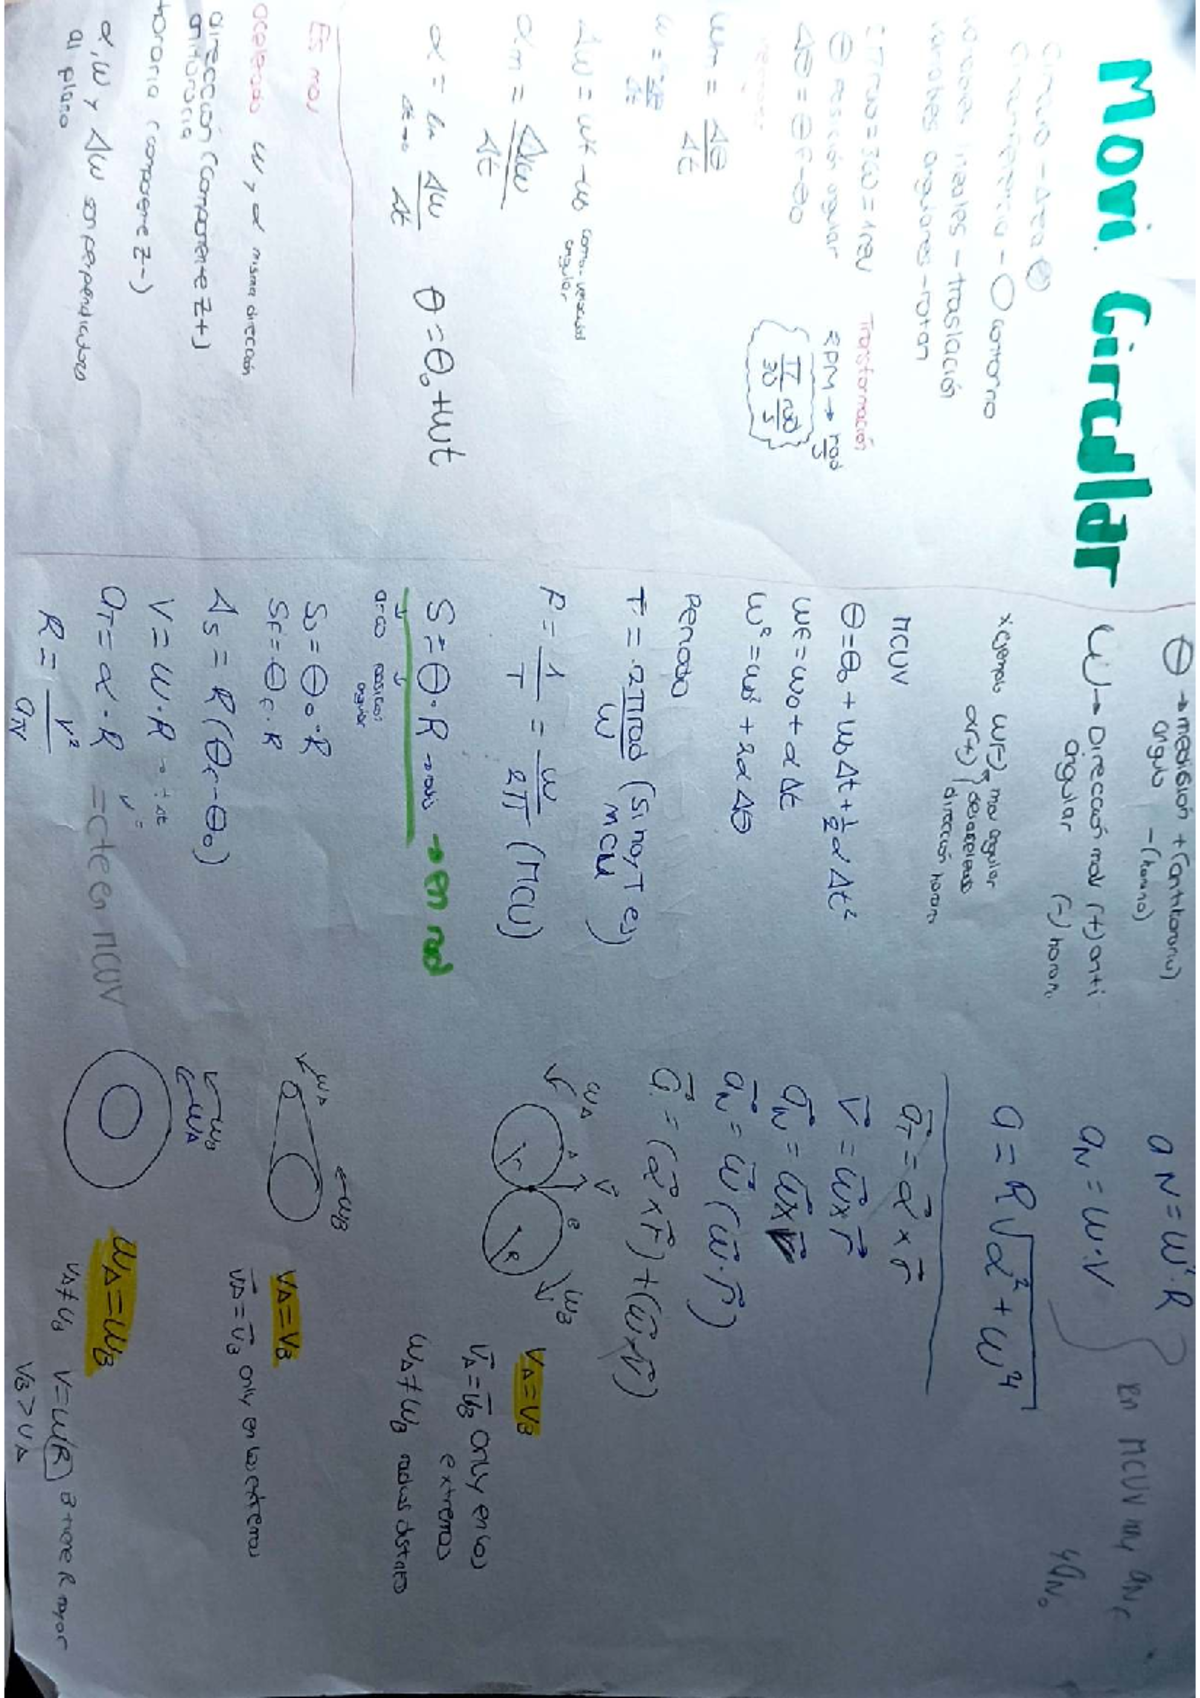 Movi. Circular
Circulo - Área
Circunferencia - O contorno
variables lineales - traslación
variables angulares - rotan
1 rev = 360 = 1 rev
Θ Posición angular
ΔΘ = Θf - Θo
Transformación
RPM → rad/s
π/30 rad/s
ωm = ΔΘ/Δt
Δω = ωf - ωo
angular
αm = Δω/Δt
α = lim Δω/Δt
Δt→0
θ = θo + ωt
Es mov
acelerado ω y α misma dirección
dirección (componente z+)
antihoraria
horaria (componente z-)
α, ω y Δω son perpendiculares
al plano
Θ → medición + (antihorario)
angulo - (horario)
ω → Dirección mov (+) anti
angular (-) horario
x ejemplo ω(-) mov angular
α(+) desacelerado
dirección horario
MCUV
Θ = Θo + ωoΔt + ½αΔt²
ωf = ωo + αΔt
ω² = ωo² + 2αΔΘ
Periodo
T = 2π rad/ω (si no, T es)
MCU
F = 1/T = ω/2π (MCU)
S = Θ·R → radio → en rad
arco posición
angular
So = Θo·R
Sf = Θf·R
Δs = R(Θf - Θo)
V = ω·R
aT = α·R = cte en MCUV
R = v²/aN
aN = ω²·R
aN = ω·V
en MCUV
a = R√α² + ω⁴
aT = α × r
V = ω × r
aN = ω ×
aN = ω(ω·r)
a = (α × r) + (ω × v)
ωA
A
V
B
ωB
r
R
VA = VB
VA = VB only en los
extremos
ωA ≠ ωB radios distintos
ωA
ωB
VA = VB
VA = VB only en los extremos
ωB
ωA
ωA = ωB
VA ≠ VB V = ω(R) B tiene R mayor
VB > VA